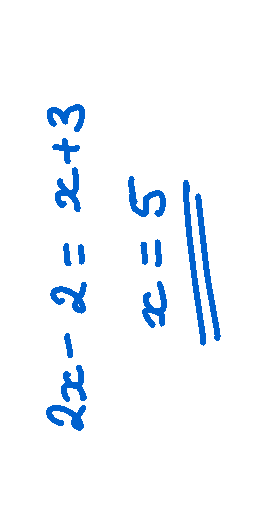 2x - 2 = x + 3
x = 5